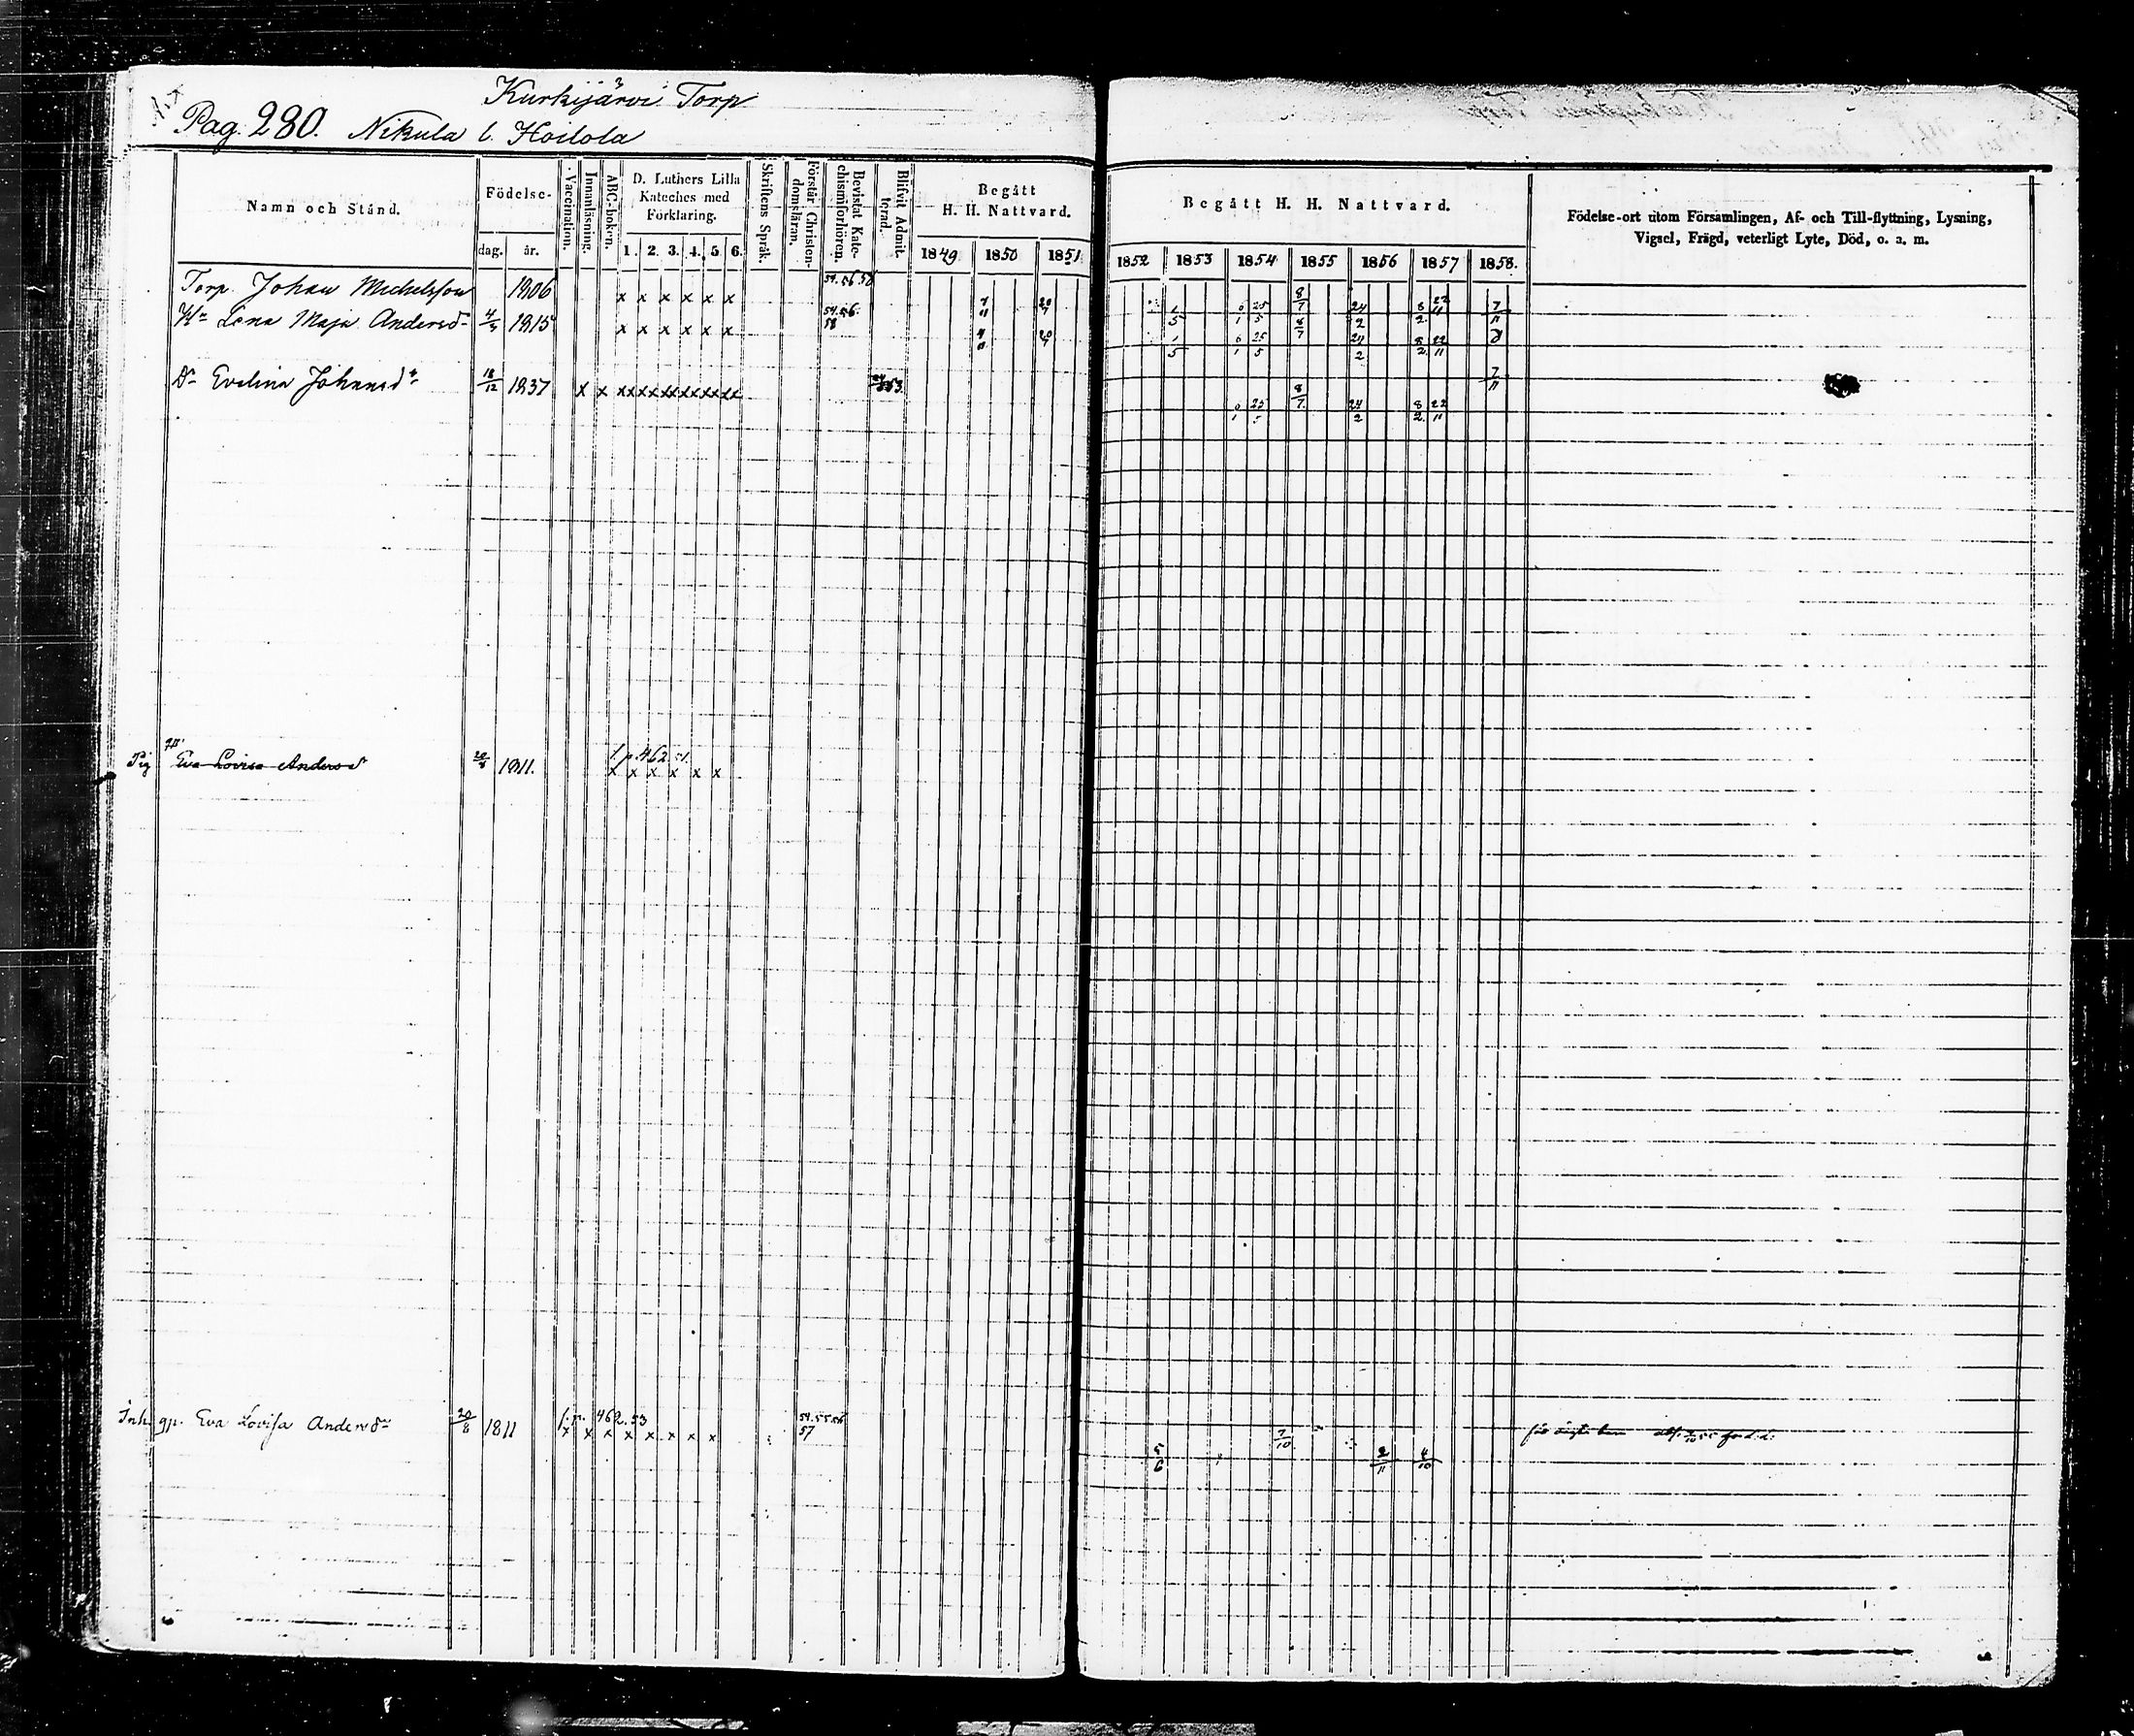 Kurkijärvi Torp
Pag. 280. Nikula l. Hoslola
Namn och Stånd.
Födelse-
dag. år.
Vaccination.
Innanläsning.
ABC-boken.
D. Luthers Lilla Kateches med Förklaring.
1. 2. 3. 4. 5. 6.
Skriftens Språk.
Förstår Christendomsläran.
Bevistat Katechismiförhören.
Blifvit Admitterad.
Begått H. H. Nattvard.
1849 1850 1851
Begått H. H. Nattvard.
1852 1853 1854 1855 1856 1857 1858.
Födelse-ort utom Församlingen, Af- och Till-flyttning, Lysning,
Vigsel, Frägd, veterligt Lyte, Död, o. s. m.
Torp. Johan Michelsson 1806 x x x x x x 54. 56 58 7/11 20/7 1/5 6/1 25/5 8/7 24/2 8/2 22/11 7/11
Hu Lena Maja Andersd. 4/5 1815 x x x x x x 54. 56. 58 7/11 20/7 1/5 6/1 25/5 8/7 24/2 8/2 22/11
Dr Evelina Johansd. 18/12 1837 x x xx xx xx xx xx xx 53. 6/1 25/5 8/7 24/2 8/2 22/11 7/11
Pig Eva Lovisa Andersd. 20/8 1811. l. p. 462
x x x x x x
Inh. gp. Eva Lovisa Andersdr 20/8 1811 l. p. 462. 53 54. 55 56 57
x x x x x x x x 5/6 7/10 2/11 4/10